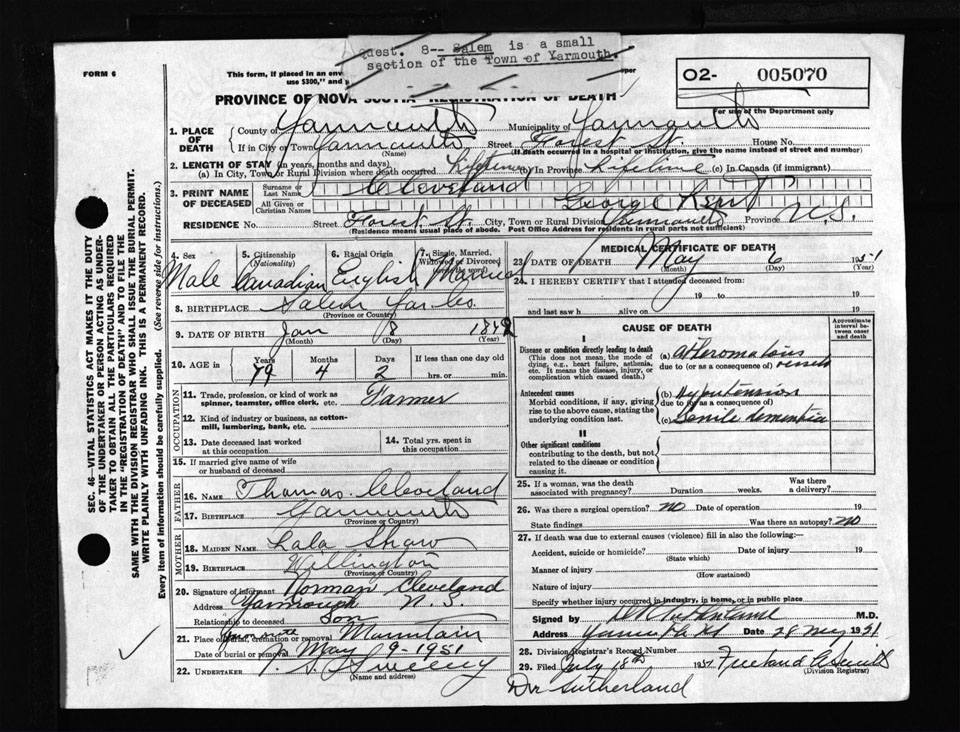 Quest. 8-- Salem is a small
section of the Town of Yarmouth.
FORM 6
This form, if placed in an env
use $300," and
O2- 005070
PROVINCE OF NOVA SCOTIA REGISTRATION OF DEATH
For use of the Department only
1. PLACE OF DEATH
County of Yarmouth Municipality of Yarmouth
If in City or Town Yarmouth Street Forest St. House No.
(Name) (If death occurred in a hospital or institution, give the name instead of street and number)
2. LENGTH OF STAY (in years, months and days)
(a) In City, Town or Rural Division where death occurred Lifetime (b) In Province Lifetime (c) In Canada (if immigrant)
3. PRINT NAME OF DECEASED
Surname or Last Name Cleveland
All Given or Christian Names George Kent
RESIDENCE No. Street Forest St. City, Town or Rural Division Yarmouth Province N.S.
(Residence means usual place of abode. Post Office Address for residents in rural parts not sufficient)
4. Sex 5. Citizenship (Nationality) 6. Racial Origin 7. Single, Married, Widowed or Divorced
Male Canadian English Married
8. BIRTHPLACE Salem Yar. Co.
(Province or Country)
9. DATE OF BIRTH Jan 8
(Month) (Day) (Year)
10. AGE Years Months Days If less than one day old
79 4 2 hrs. or min.
OCCUPATION
11. Trade, profession, or kind of work as spinner, teamster, office clerk, etc. Farmer
12. Kind of industry or business, as cotton-mill, lumbering, bank, etc.
13. Date deceased last worked at this occupation
14. Total yrs. spent in this occupation
15. If married give name of wife or husband of deceased
FATHER
16. Name Thomas Cleveland
17. BIRTHPLACE Yarmouth
(Province or Country)
MOTHER
18. MAIDEN NAME Lala Shaw
19. BIRTHPLACE Wellington
(Province or Country)
20. Signature of informant Norman Cleveland
Address Yarmouth N.S.
Relationship to deceased Son
21. Place of burial, cremation or removal Yarmouth Mountain
Date of burial or removal May 9-1951
22. UNDERTAKER Sweeny
(Name and address)
MEDICAL CERTIFICATE OF DEATH
23. DATE OF DEATH May 6 1951
(Month) (Day) (Year)
24. I HEREBY CERTIFY that I attended deceased from:
19 to 19
and last saw h alive on 19
CAUSE OF DEATH
Approximate interval between onset and death
I
Disease or condition directly leading to death
(This does not mean the mode of dying, e.g., heart failure, asthenia, etc. It means the disease, injury, or complication which caused death.)
(a) Atheromatous vessels
due to (or as a consequence of)
Antecedent causes
Morbid conditions, if any, giving rise to the above cause, stating the underlying condition last.
(b) Hypertension
due to (or as a consequence of)
(c) Senile dementia
II
Other significant conditions
contributing to the death, but not related to the disease or condition causing it.
25. If a woman, was the death associated with pregnancy? Duration weeks. Was there a delivery?
26. Was there a surgical operation? no Date of operation 19
State findings Was there an autopsy? no
27. If death was due to external causes (violence) fill in also the following:—
Accident, suicide or homicide? Date of injury 19
(State which)
Manner of injury
(How sustained)
Nature of injury
Specify whether injury occurred in industry, in home, or in public place
Signed by M.D.
Address Date 28 May 1951
28. Division Registrar's Record Number
29. Filed July 18th 1951 Freeland
(Division Registrar)
Dr Sutherland
SEC. 46—VITAL STATISTICS ACT MAKES IT THE DUTY
OF THE UNDERTAKER OR PERSON ACTING AS UNDER-
TAKER TO OBTAIN ALL THE PARTICULARS REQUIRED
IN THE "REGISTRATION OF DEATH" AND TO FILE THE
SAME WITH THE DIVISION REGISTRAR WHO SHALL ISSUE THE BURIAL PERMIT.
WRITE PLAINLY WITH UNFADING INK. THIS IS A PERMANENT RECORD.
Every item of information should be carefully supplied. (See reverse side for instructions.)